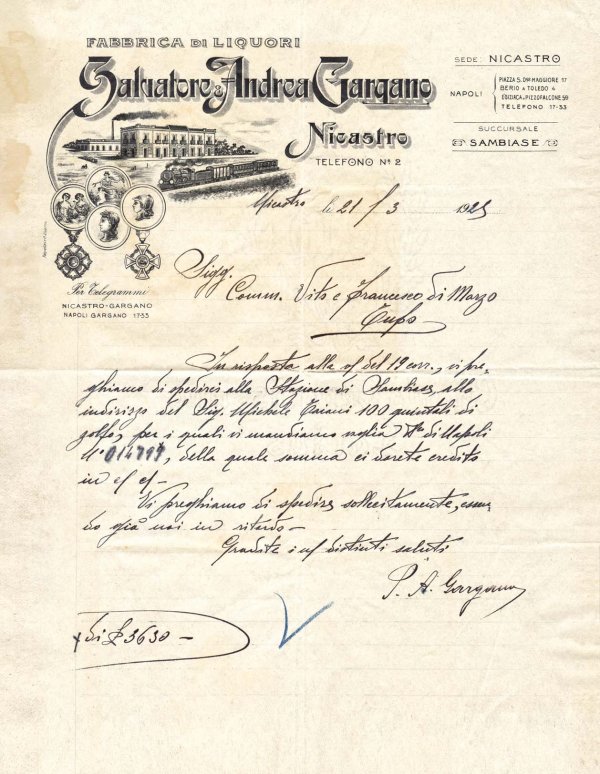 FABBRICA DI LIQUORI
Salvatore & Andrea Gargano
Nicastro
TELEFONO Nº 2
SEDE: NICASTRO
NAPOLI
PIAZZA S. Dᴺᴬ MAGGIORE 17
BERIO A TOLEDO 4
EGIZIACA A PIZZOFALCONE 59
TELEFONO 17-33
SUCCURSALE
SAMBIASE
Per Telegrammi
NICASTRO-GARGANO
NAPOLI GARGANO 17-33
Nicastro li 21/3 1925
Sigg.
Comm. Vito e Francesco di Marzo
Tufo
In risposta alla vs/ del 19 corr., vi pre-
ghiamo di spedire alla Stazione di Sambiase, allo
indirizzo del Sig. Michele 100 quintali di
zolfo, per i quali vi mandiamo vaglia Bº di Napoli
Nº 014799, della quale somma ci darete credito
in c/ c/-
Vi preghiamo di spedire sollecitamente, essen-
do già noi in ritardo-
Gradite i ns/ distinti saluti
A. Gargano
x di £ 3630 -